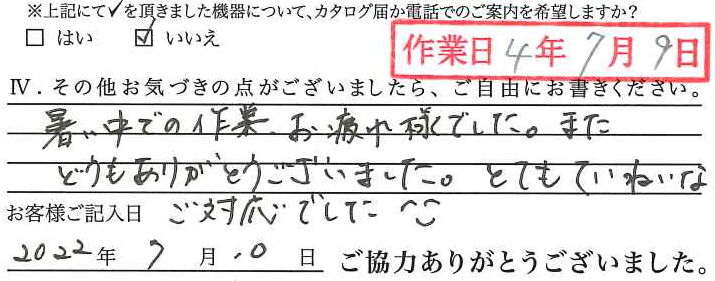 ※上記にて✓を頂きました機器について、カタログ届か電話でのご案内を希望しますか?
□ はい ☑ いいえ
作業日 4年 7月 9日
Ⅳ. その他お気づきの点がございましたら、ご自由にお書きください。
暑い中での作業、お疲れ様でした。また
どうもありがとうございました。とてもていねいな
ご対応でした ^^
お客様ご記入日
2022年 7月 10日 ご協力ありがとうございました。